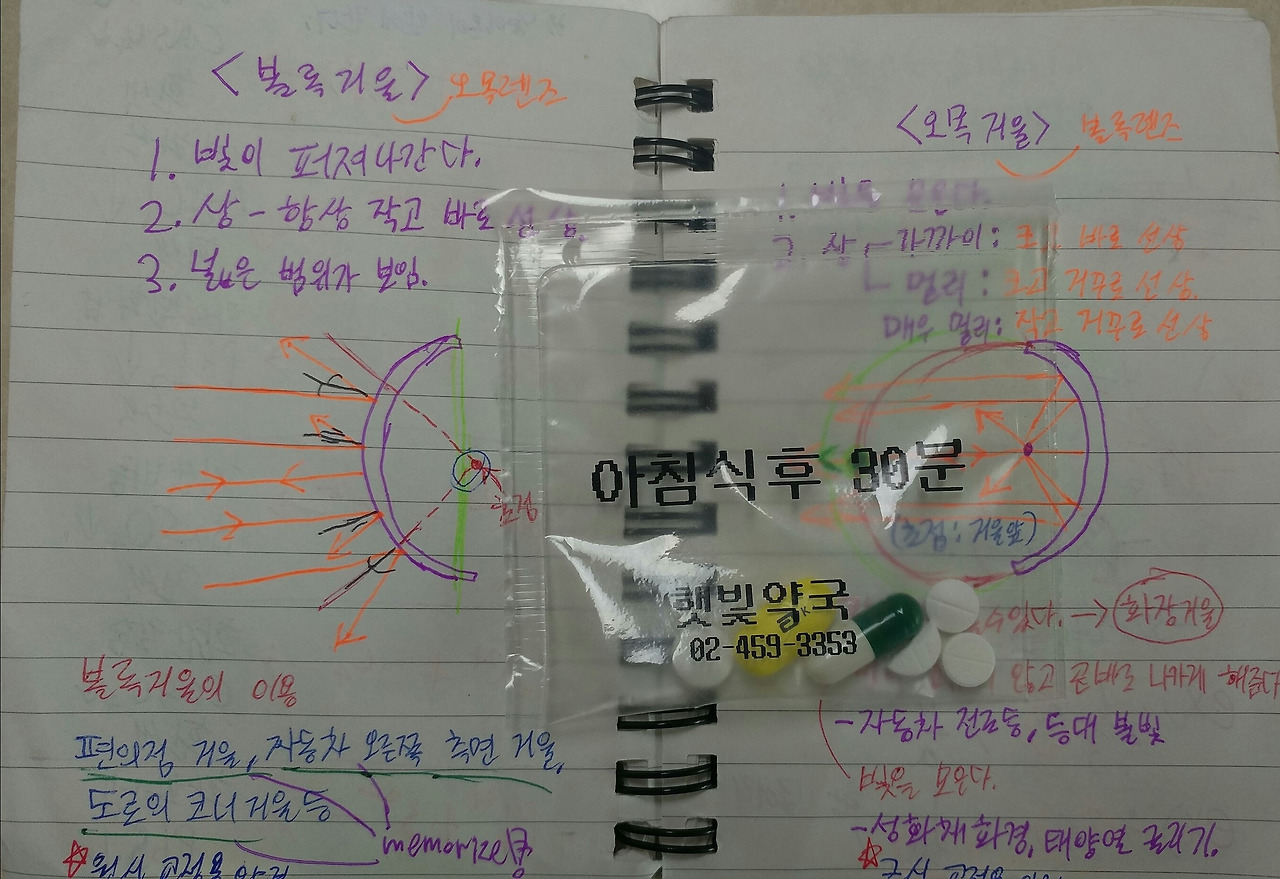 <볼록거울> 오목렌즈
1. 빛이 퍼져나간다.
2. 상 - 항상 작고 바로 선 상.
3. 넓은 범위가 보임.
초점
볼록거울의 이용
편의점 거울, 자동차 오른쪽 측면 거울,
도로의 코너거울 등
memorize
<오목거울> 볼록렌즈
1. 빛을 모은다.
2. 상 가까이: 크고 바로 선상
멀리: 크고 거꾸로 선 상.
매우 멀리: 작고 거꾸로 선상
(초점: 거울앞)
수있다. → 화장거울
않고 곧바로 나가게 해준다
- 자동차 전조등, 등대 불빛
빛을 모은다.
- 성화채화경, 태양열
아침식후 30분
햇빛약국
02-459-3353